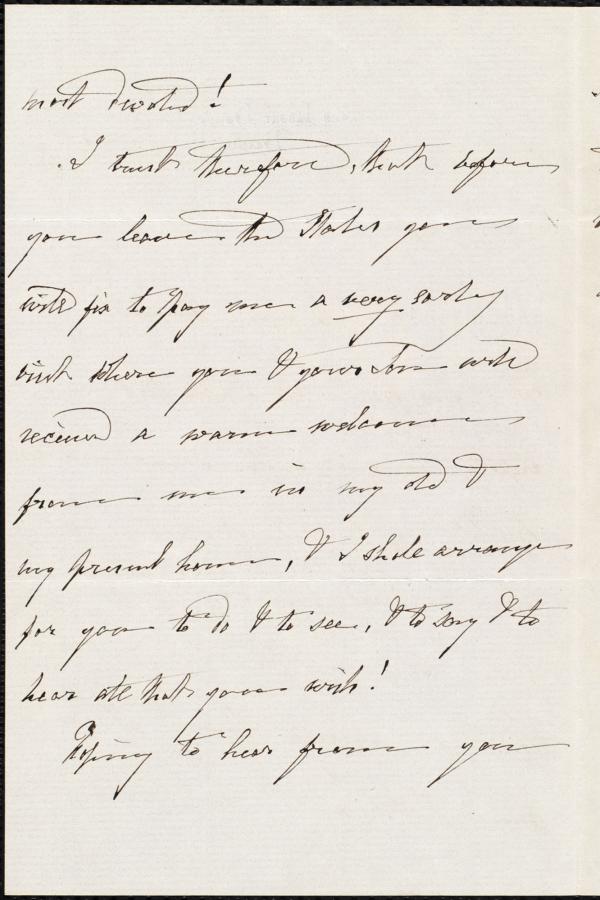 most devoted!
I trust therefore, that before
you leave the States you
will fix to pay me a very early
visit where you & your Son will
receive a warm welcome
from me in my old &
my present home, & I shall arrange
for you to do & to see, & to say & to
hear all that you wish!
Hoping to hear from you